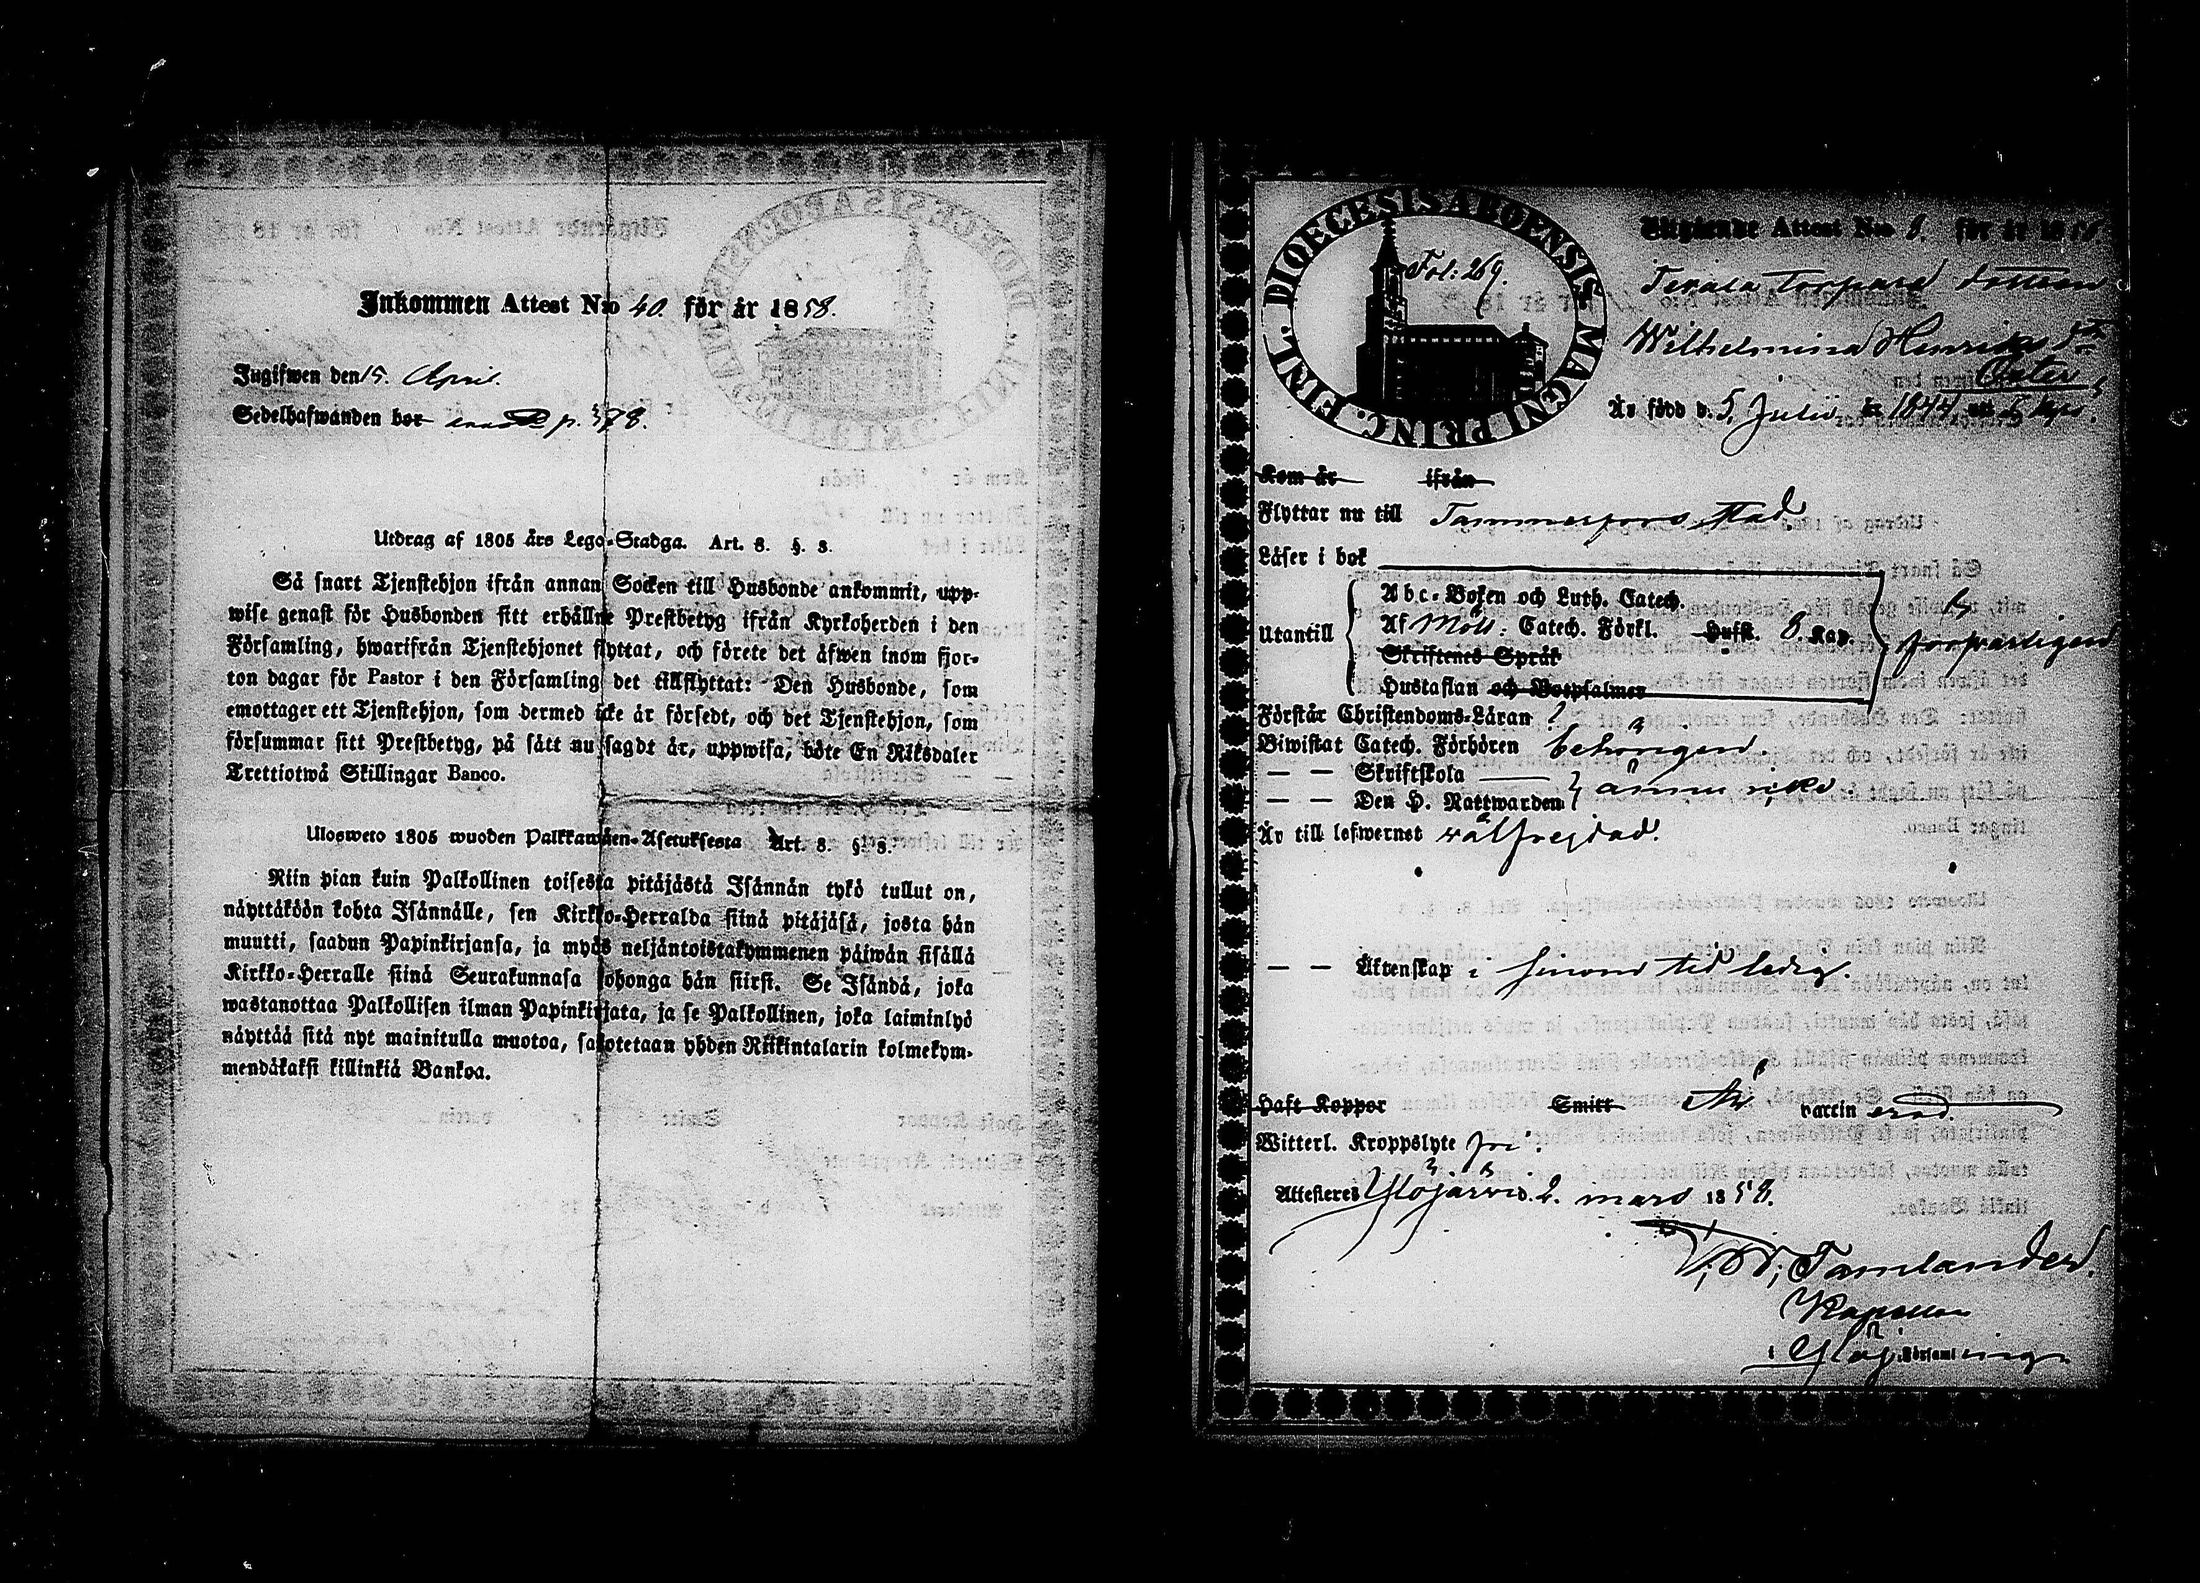 Inkommen Attest N:o 40. för år 1858.
Ingifwen den 15. April.
Sedelhafwanden bor p. 378.
Utdrag af 1805 års Lego-Stadga. Art. 8. §. 3.
Så snart Tjenstehjon ifrån annan Socken till Husbonde ankommit, upp-
wise genast för Husbonden sitt erhållne Prestbetyg ifrån Kyrkoherden i den
Församling, hwarifrån Tjenstehjonet flyttat, och förete det äfwen inom fjor-
ton dagar för Pastor i den Församling det tillflyttat: Den Husbonde, som
emottager ett Tjenstehjon, som dermed icke är försedt, och det Tjenstehjon, som
försummar sitt Prestbetyg, på sätt nu sagdt är, uppwisa, böte En Riksdaler
Trettiotwå Skillingar Banco.
Ulosweto 1805 wuoden Palkkawäen-Asetuksesta Art. 8. §. 3.
Niin pian kuin Palkollinen toisesta pitäjästä Isännän tykö tullut on,
näyttäköön kohta Isännälle, sen Kirkko-Herralda siinä pitäjäsä, josta hän
muutti, saadun Papinkirjansa, ja myös neljäntoistakymmenen päiwän sisällä
Kirkko-Herralle siinä Seurakunnasa johonga hän siirsi. Se Isändä, joka
wastanottaa Palkollisen ilman Papinkirjata, ja se Palkollinen, joka laiminlyö
näyttää sitä nyt mainitulla muotoa, sakotetaan yhden Riikintalarin kolmekym-
mendäkaksi killinkiä Bankoa.
DIOECESIS ABOENSIS MAGNI PRINC. FINL.
Fol: 269.
Utgående Attest N:o 8. för år 1858.
Torpare dottren
Wilhelmina Henriks dr
Är född d. 5 Julii år 1844
Kom år ifrån
Flyttar nu till Tammerfors stad
Läser i bok
Abc-Boken och Luth. Catech.
Utantill Af Möll: Catech. Förkl. Hufst. 8. Kap. försvarligen
Skriftenes Språk
Hustaflan och Botpsalmer
Förstår Christendoms-Läran
Biwistat Catech. Förhören behörigen
— — Skriftskola
— — Den H. Nattwarden ännu icke
Är till lefwernet wälfrejdad.
— — Äktenskap i sinom tid ledig.
Haft Koppor Smitt vaccin
Witterl. Kroppslyte fri.
Attesteres Ylöjärvi d. 2. mars 1858.
Tamlander.
Kapellan
i Ylöj. Församling.